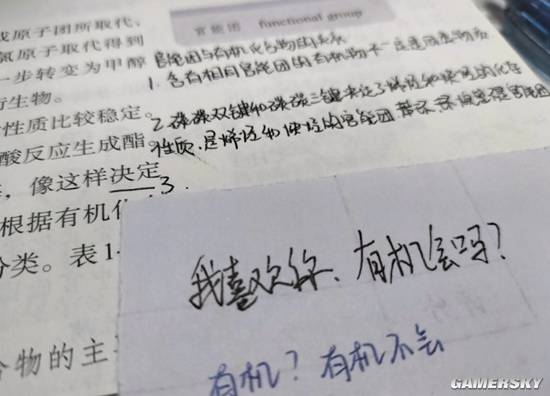 官能团 functional group
或原子团所取代、
氯原子取代得到
官能团与有机化合物的关系
一步转变为甲醇
1. 含有相同官能团的有机物不一定是同类物质
衍生物。
性质比较稳定。
2. 碳碳双键和碳碳三键决定了烯烃和炔烃的化学
酸反应生成酯。
性质,是烯烃和炔烃的官能团
像这样决定
3.
根据有机化
分类。表1-
我喜欢你、有机会吗?
合物的主
有机?有机不会
GAMERSKY